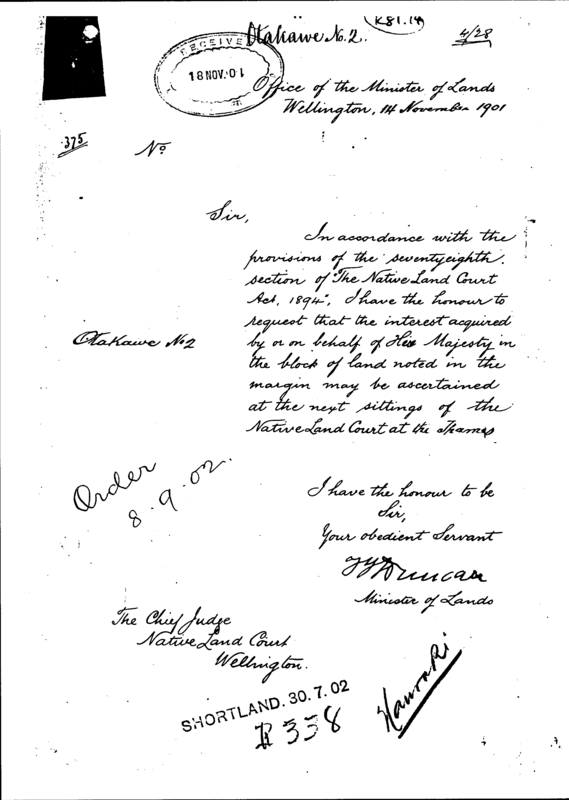 Otakawe No. 2.
K81.14
4/28
RECEIVED
18 NOV. 01
Office of the Minister of Lands
Wellington, 14 November 1901
375
No
Sir,
In accordance with the
provisions of the seventyeighth
section of "The Native Land Court
Act, 1894", I have the honour to
request that the interest acquired
Otakawe No 2
by or on behalf of His Majesty in
the block of land noted in the
margin may be ascertained
at the next sittings of the
Native Land Court at the Thames
Order
8.9.02.
I have the honour to be
Sir,
Your obedient Servant
TYDuncan
Minister of Lands
The Chief Judge
Native Land Court
Wellington.
Hauraki
SHORTLAND. 30.7.02
R 338